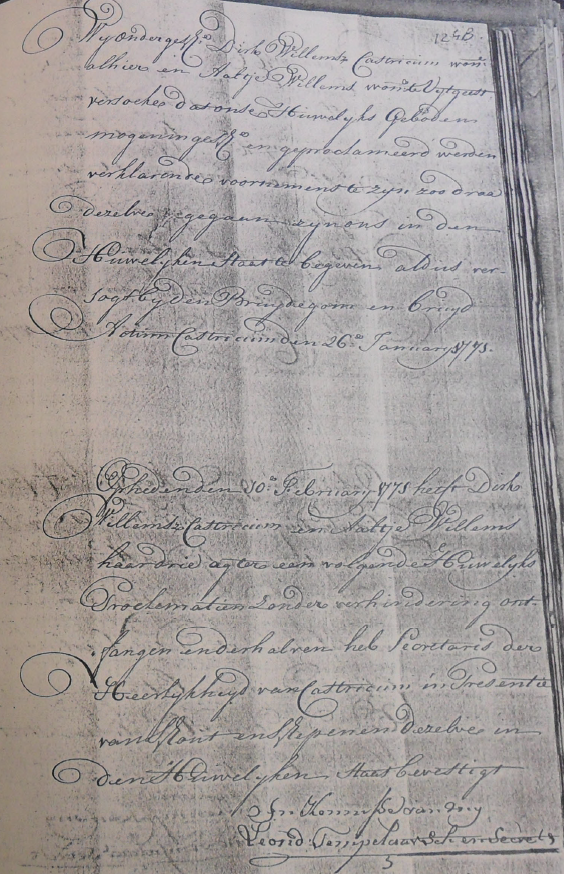 124B.
Wij ondergesz. Dirk Willemsz Castricum won:
alhier en Aaltje Willems won: te Uytgeest
versoeken dat onse Huwelyks Geboden
mogen ingesz. en geproclameerd werden
verklarende voornemens te zyn zoo draa
dezelve gegaan zyn ons in den
Huwelyken Staat te begeven aldus ver-
sogt by den Bruydegom en bruyd
Actum Castricum den 26e January 1771.
Op heden den 10e February 1771 heeft Dirk
Willemsz Castricum en Aaltje Willems
haar drie agter een volgende Huwelyks
Proclamatien zonder verhindering ont-
fangen en derhalven heb Secretaris der
Heerlykheyd van Castricum in Presentie
van Schout en Schepenen dezelve in
den Huwelyken Staat bevestigt
In Kennisse van my
Leond: Tempelaar Sch: en Secrets